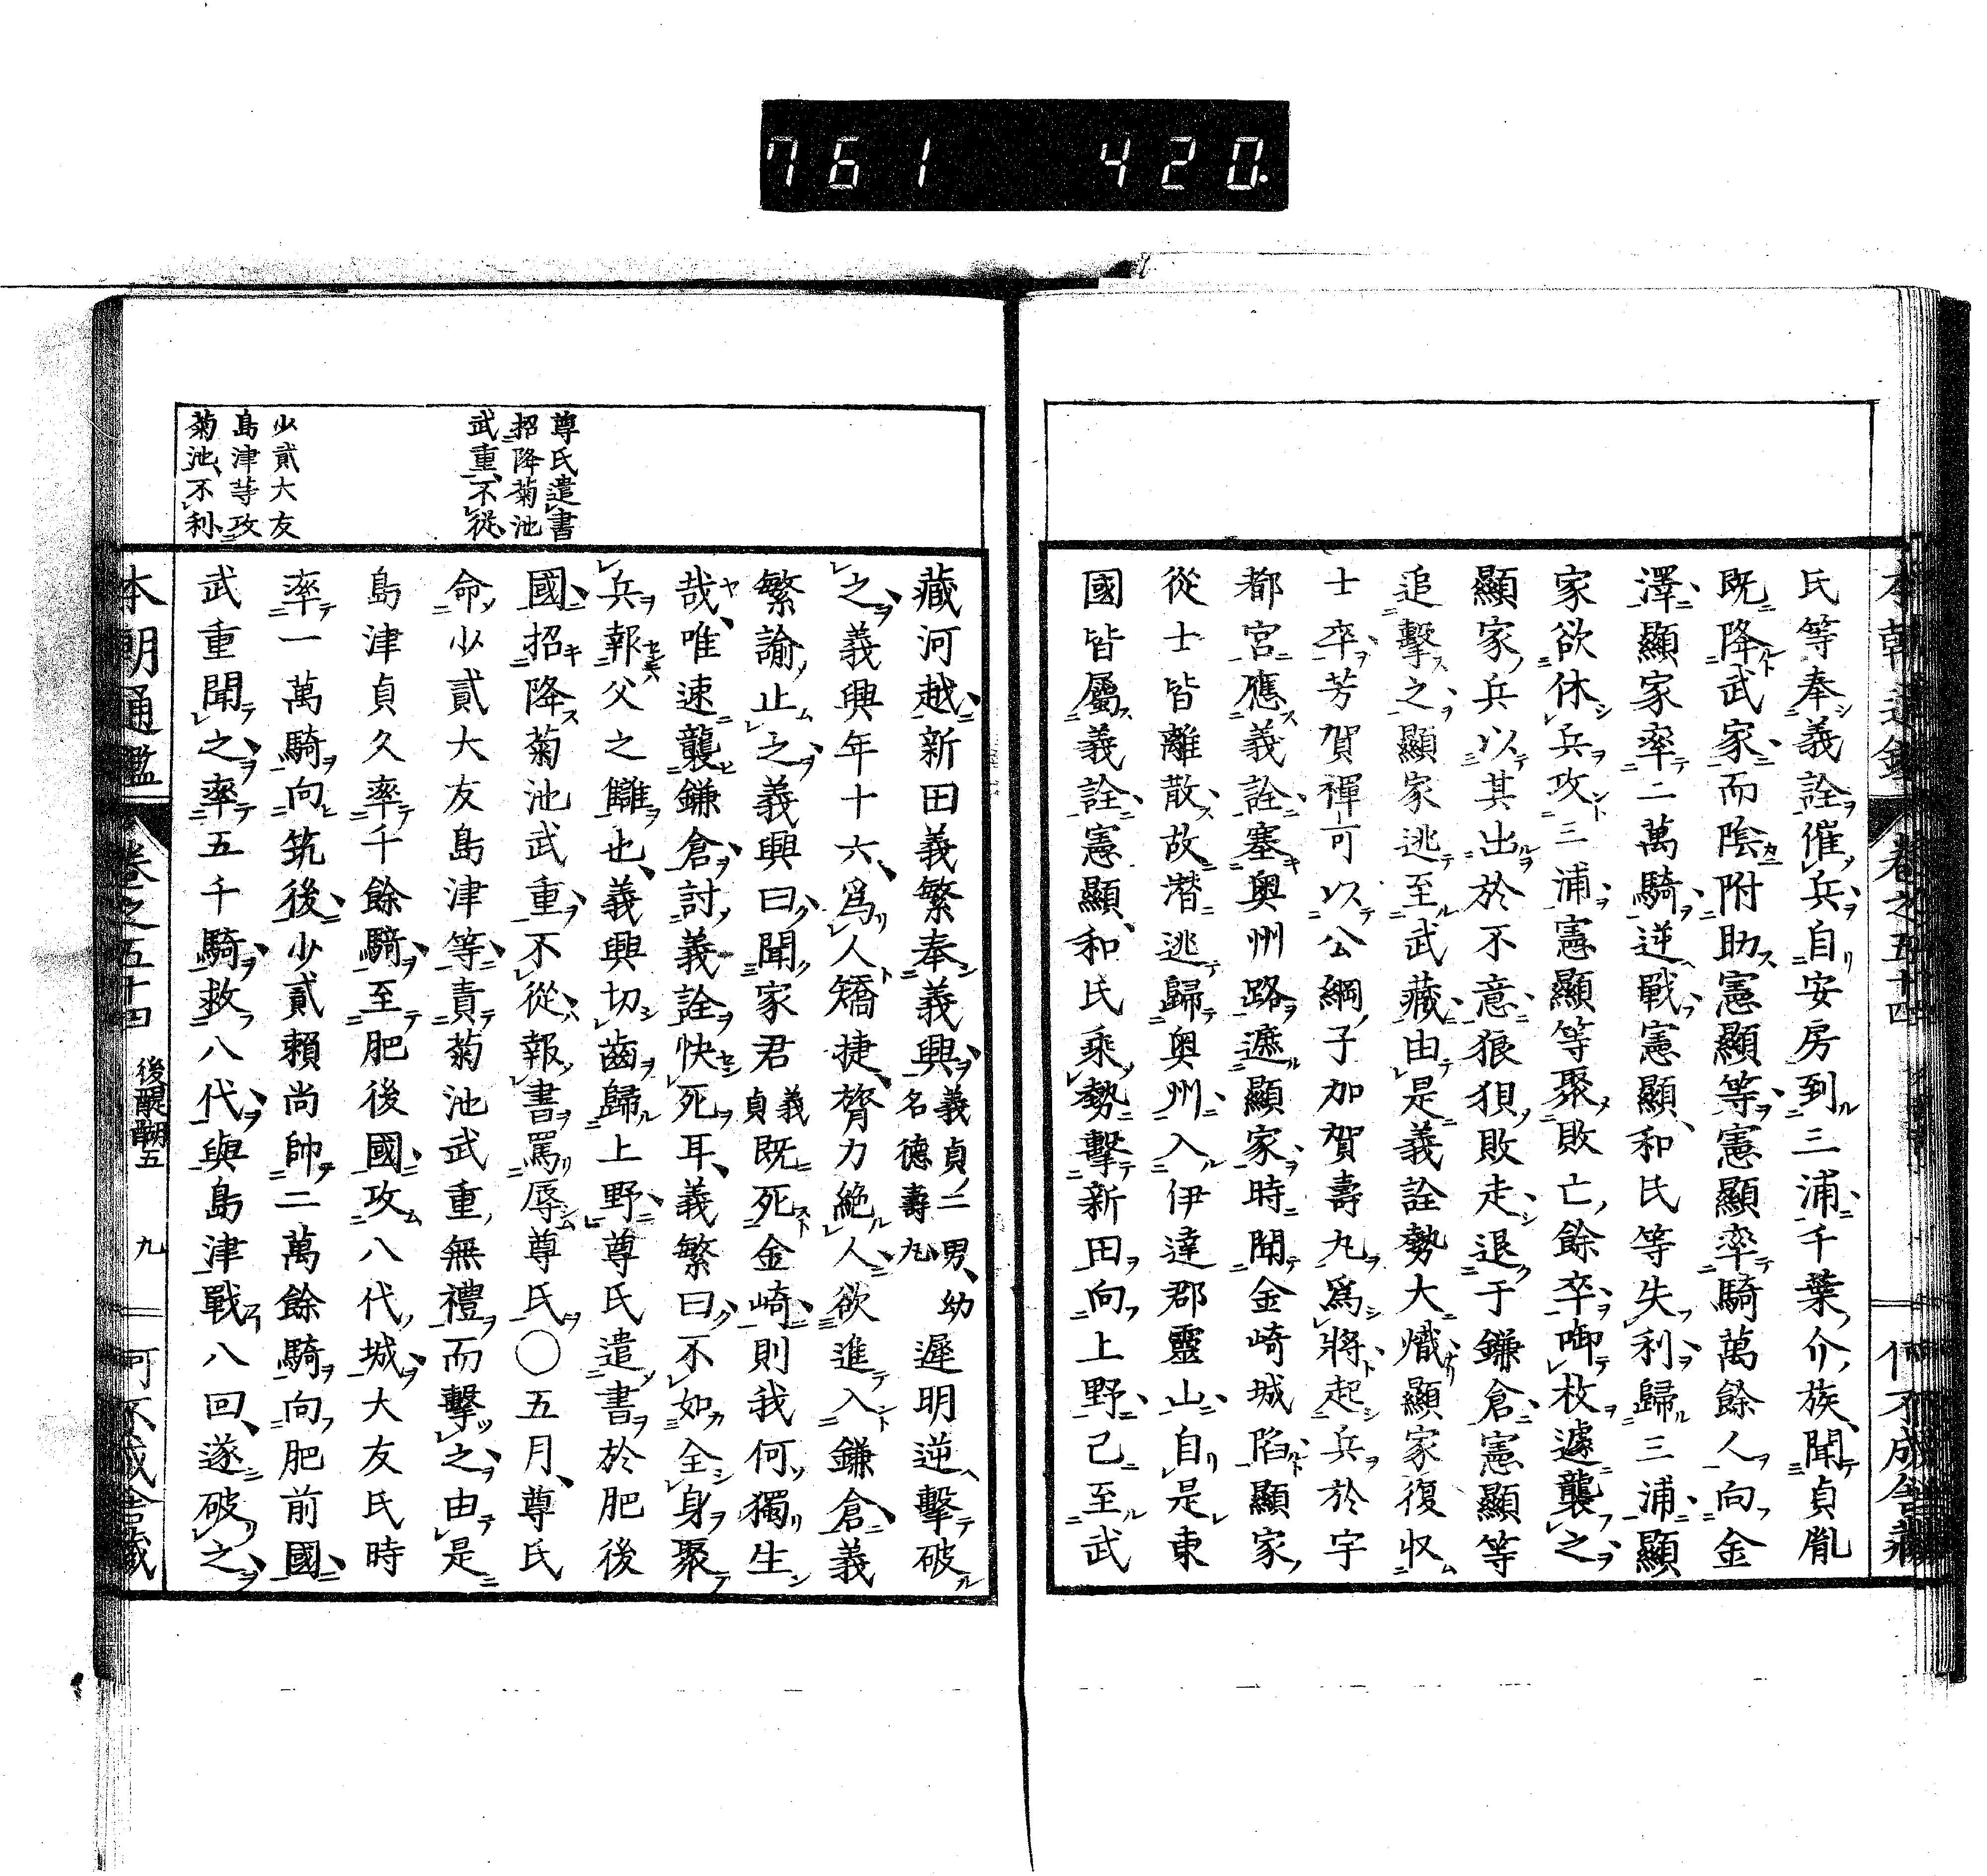 761 420.
本朝通鑑 卷之五十四 何不成舍藏
氏等奉義詮催兵自安房到三浦千葉介族聞貞胤
既降武家而陰附助憲顯等憲顯率騎萬餘人向金
澤顯家率二萬騎逆戰憲顯和氏等失利歸三浦顯
家欲休兵攻三浦憲顯等聚敗亡餘卒啣枚遽襲之
顯家兵以其出於不意狼狽敗走退于鎌倉憲顯等
追擊之顯家逃至武藏由是義詮勢大熾顯家復收
士卒芳賀禪可以公綱子加賀壽丸爲將起兵於宇
都宮應義詮塞奥州路遮顯家時聞金崎城陷顯家
從士皆離散故潛逃歸奥州入伊達郡靈山自是東
國皆屬義詮憲顯和氏乘勢擊新田向上野已至武
尊氏遣書
招降菊池
武重不從
少貳大友
島津等攻
菊池不利
藏河越新田義繁奉義興義貞二男幼名德壽丸遲明逆擊破
之義興年十六爲人矯捷膂力絶人欲進入鎌倉義
繁諭止之義興曰聞家君義貞既死金崎則我何獨生
哉唯速襲鎌倉討義詮快死耳義繁曰不如全身聚
兵報父之讎也義興切齒歸上野尊氏遣書於肥後
國招降菊池武重不從報書罵辱尊氏○五月尊氏
命少貳大友島津等責菊池武重無禮而擊之由是
島津貞久率千餘騎至肥後國攻八代城大友氏時
率一萬騎向筑後少貳賴尚帥二萬餘騎向肥前國
武重聞之率五千騎救八代與島津戰八回遂破之
本朝通鑑 卷之五十四 後醍醐五 九 何不成舍藏